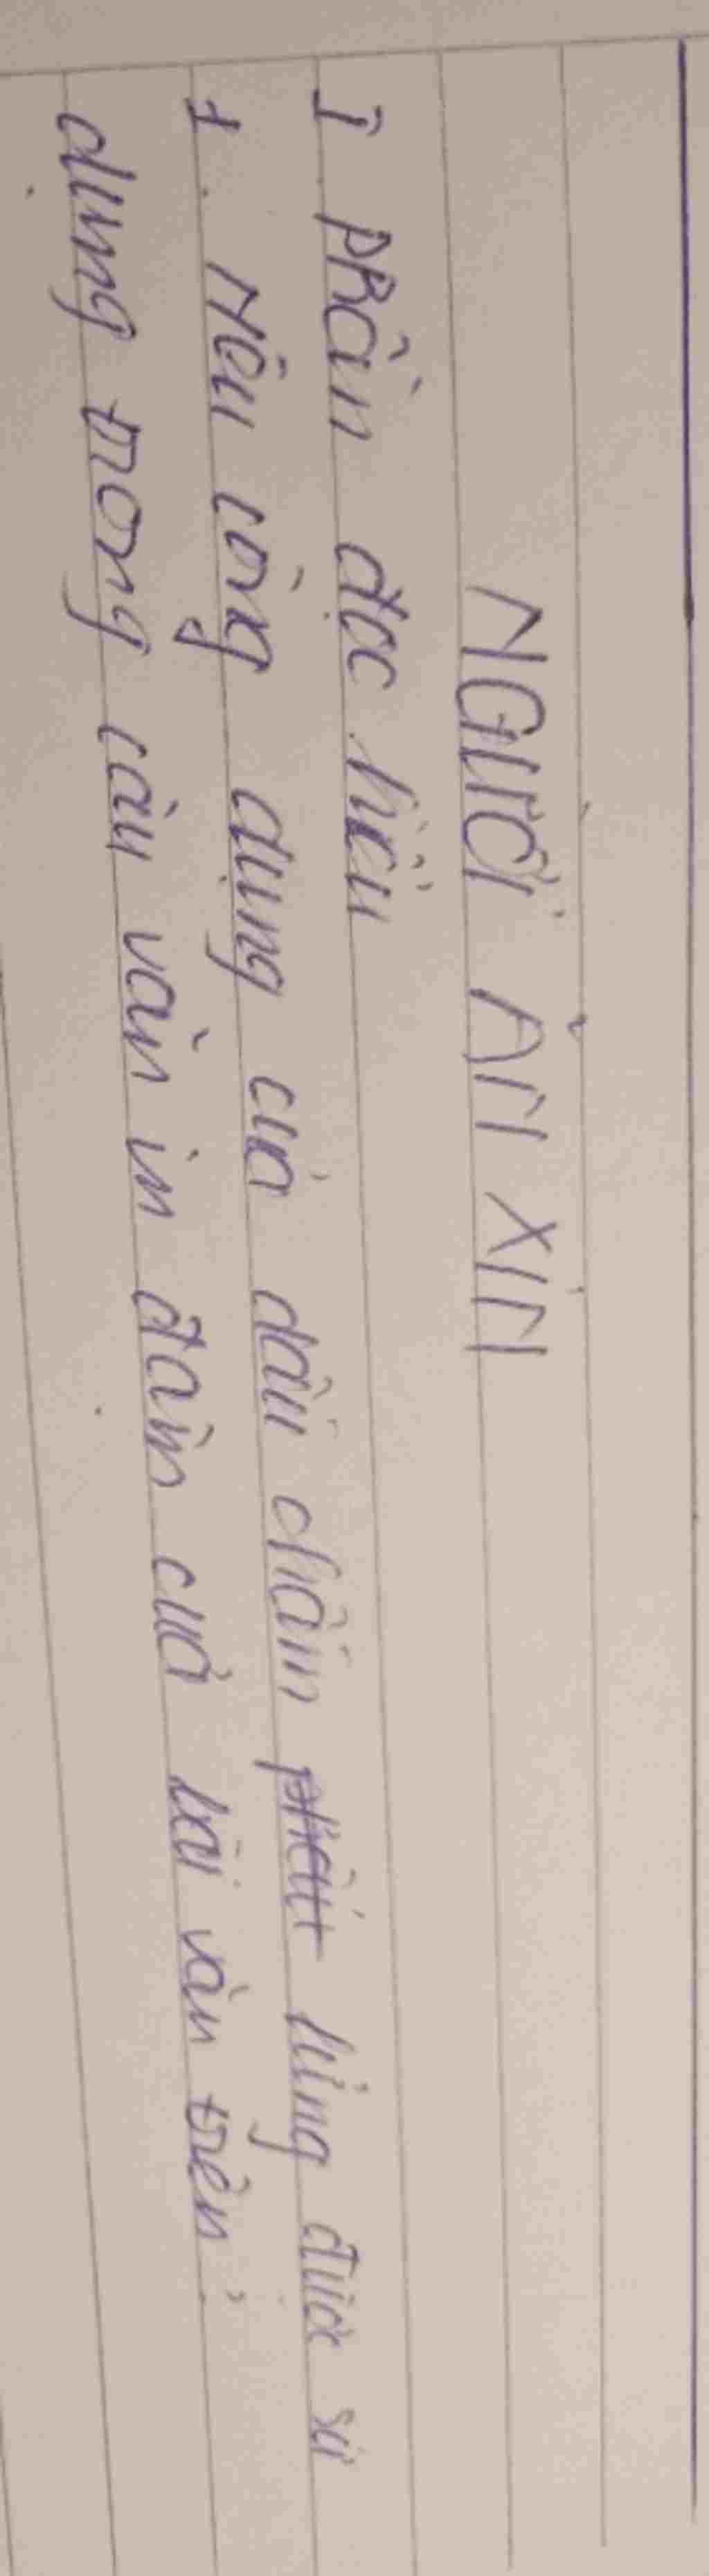 NGƯỜI ĂN XIN
I Phần đọc hiểu
1. Nêu công dụng của dấu chấm lửng được sử
dụng trong câu văn in đậm của bài văn trên.